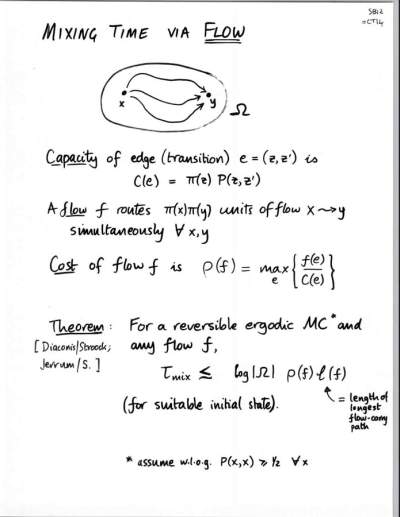 SBi2
OCT14
MIXING TIME VIA FLOW
x
y
Ω
Capacity of edge (transition) e = (z,z') is
C(e) = π(z) P(z,z')
A flow f routes π(x)π(y) units of flow x ⇝ y
simultaneously ∀ x,y
Cost of flow f is ρ(f) = max_e { f(e) / C(e) }
Theorem: For a reversible ergodic MC* and
[Diaconis/Stroock; any flow f,
Jerrum/S.]
τ_mix ≤ log|Ω| ρ(f) ℓ(f)
(for suitable initial state).
= length of
longest
flow-carry
path
* assume w.l.o.g. P(x,x) ≥ ½ ∀ x